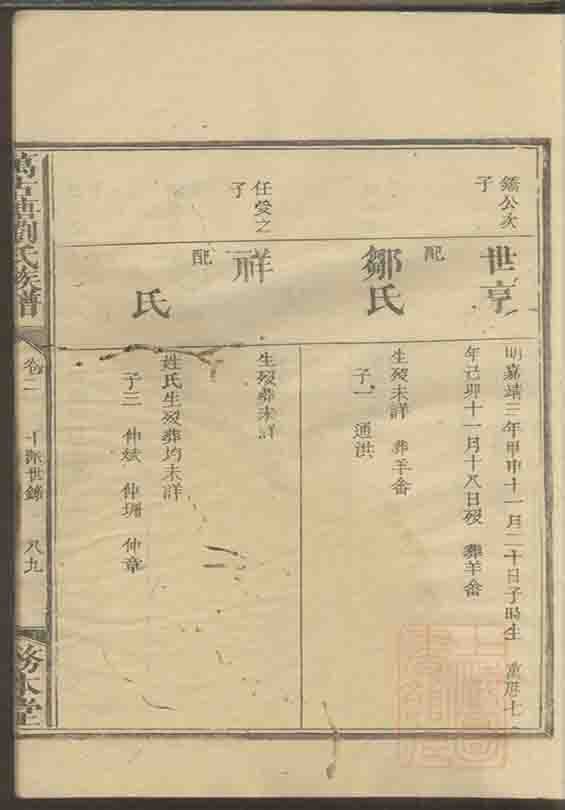 鑑公次
子
世亨
明嘉靖三年甲申十一月二十日子時生 萬曆七
年己卯十一月十八日歿 葬羊畲
配
鄒氏
生歿未詳 葬羊畲
子一 通洪
任受之
子
祥
生歿葬未詳
配
氏
姓氏生歿葬均未詳
子三 仲斌 仲珊 仲章
萬古塘劉氏族譜
卷二
十派世錄
八九
務本堂